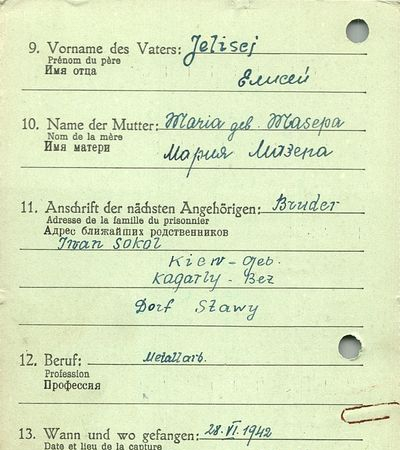 9. Vorname des Vaters: Jelisej
Prénom du père
Имя отца
Елисей
10. Name der Mutter: Maria geb. Masepa
Nom de la mère
Имя матери
Мария Мазепа
11. Anschrift der nächsten Angehörigen: Bruder
Adresse de la famille du prisonnier
Адрес ближайших родственников
Iwan Sokol
Kiew - Geb.
Kagarly - Bez
Dorf Stawy
12. Beruf: Metallarb.
Profession
Профессия
13. Wann und wo gefangen: 28.VI.1942
Date et lieu de la capture